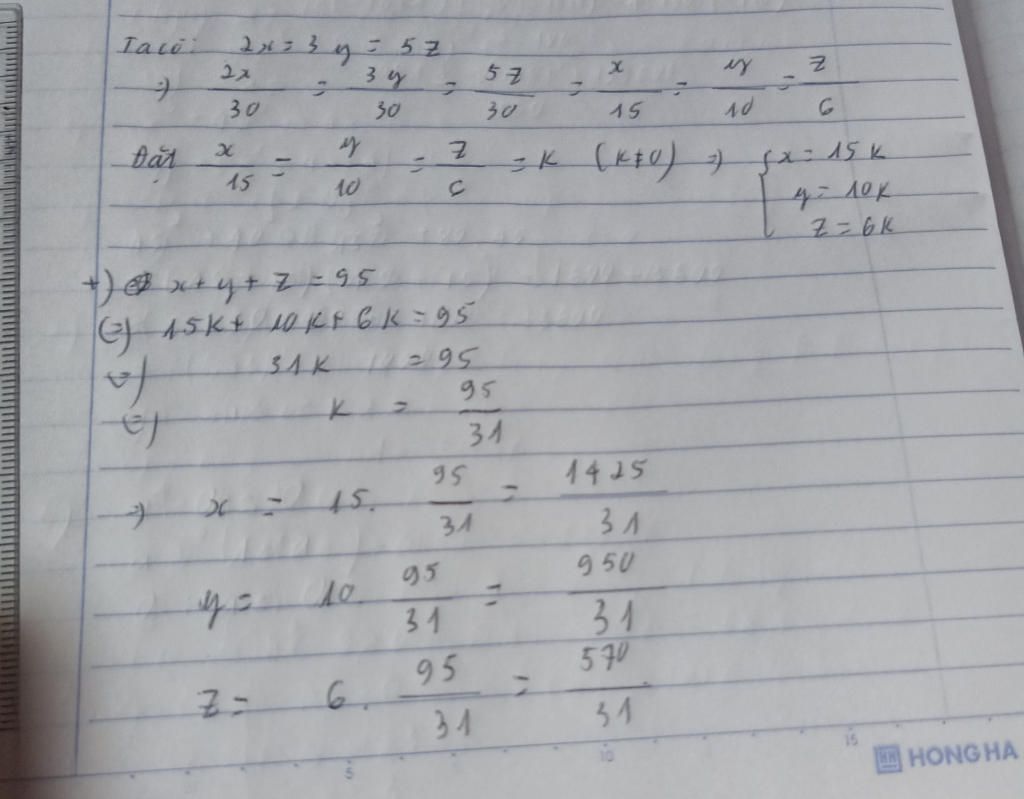 Ta có: 2x = 3y = 5z
=> 2x/30 = 3y/30 = 5z/30 = x/15 = y/10 = z/6
Đặt x/15 = y/10 = z/6 = K (K≠0) => { x = 15K
y = 10K
z = 6K
+) x + y + z = 95
(=) 15K + 10K + 6K = 95
(=) 31K = 95
(=) K = 95/31
=> x = 15. 95/31 = 1425/31
y = 10. 95/31 = 950/31
z = 6. 95/31 = 570/31
5 10 15
HH HONG HA